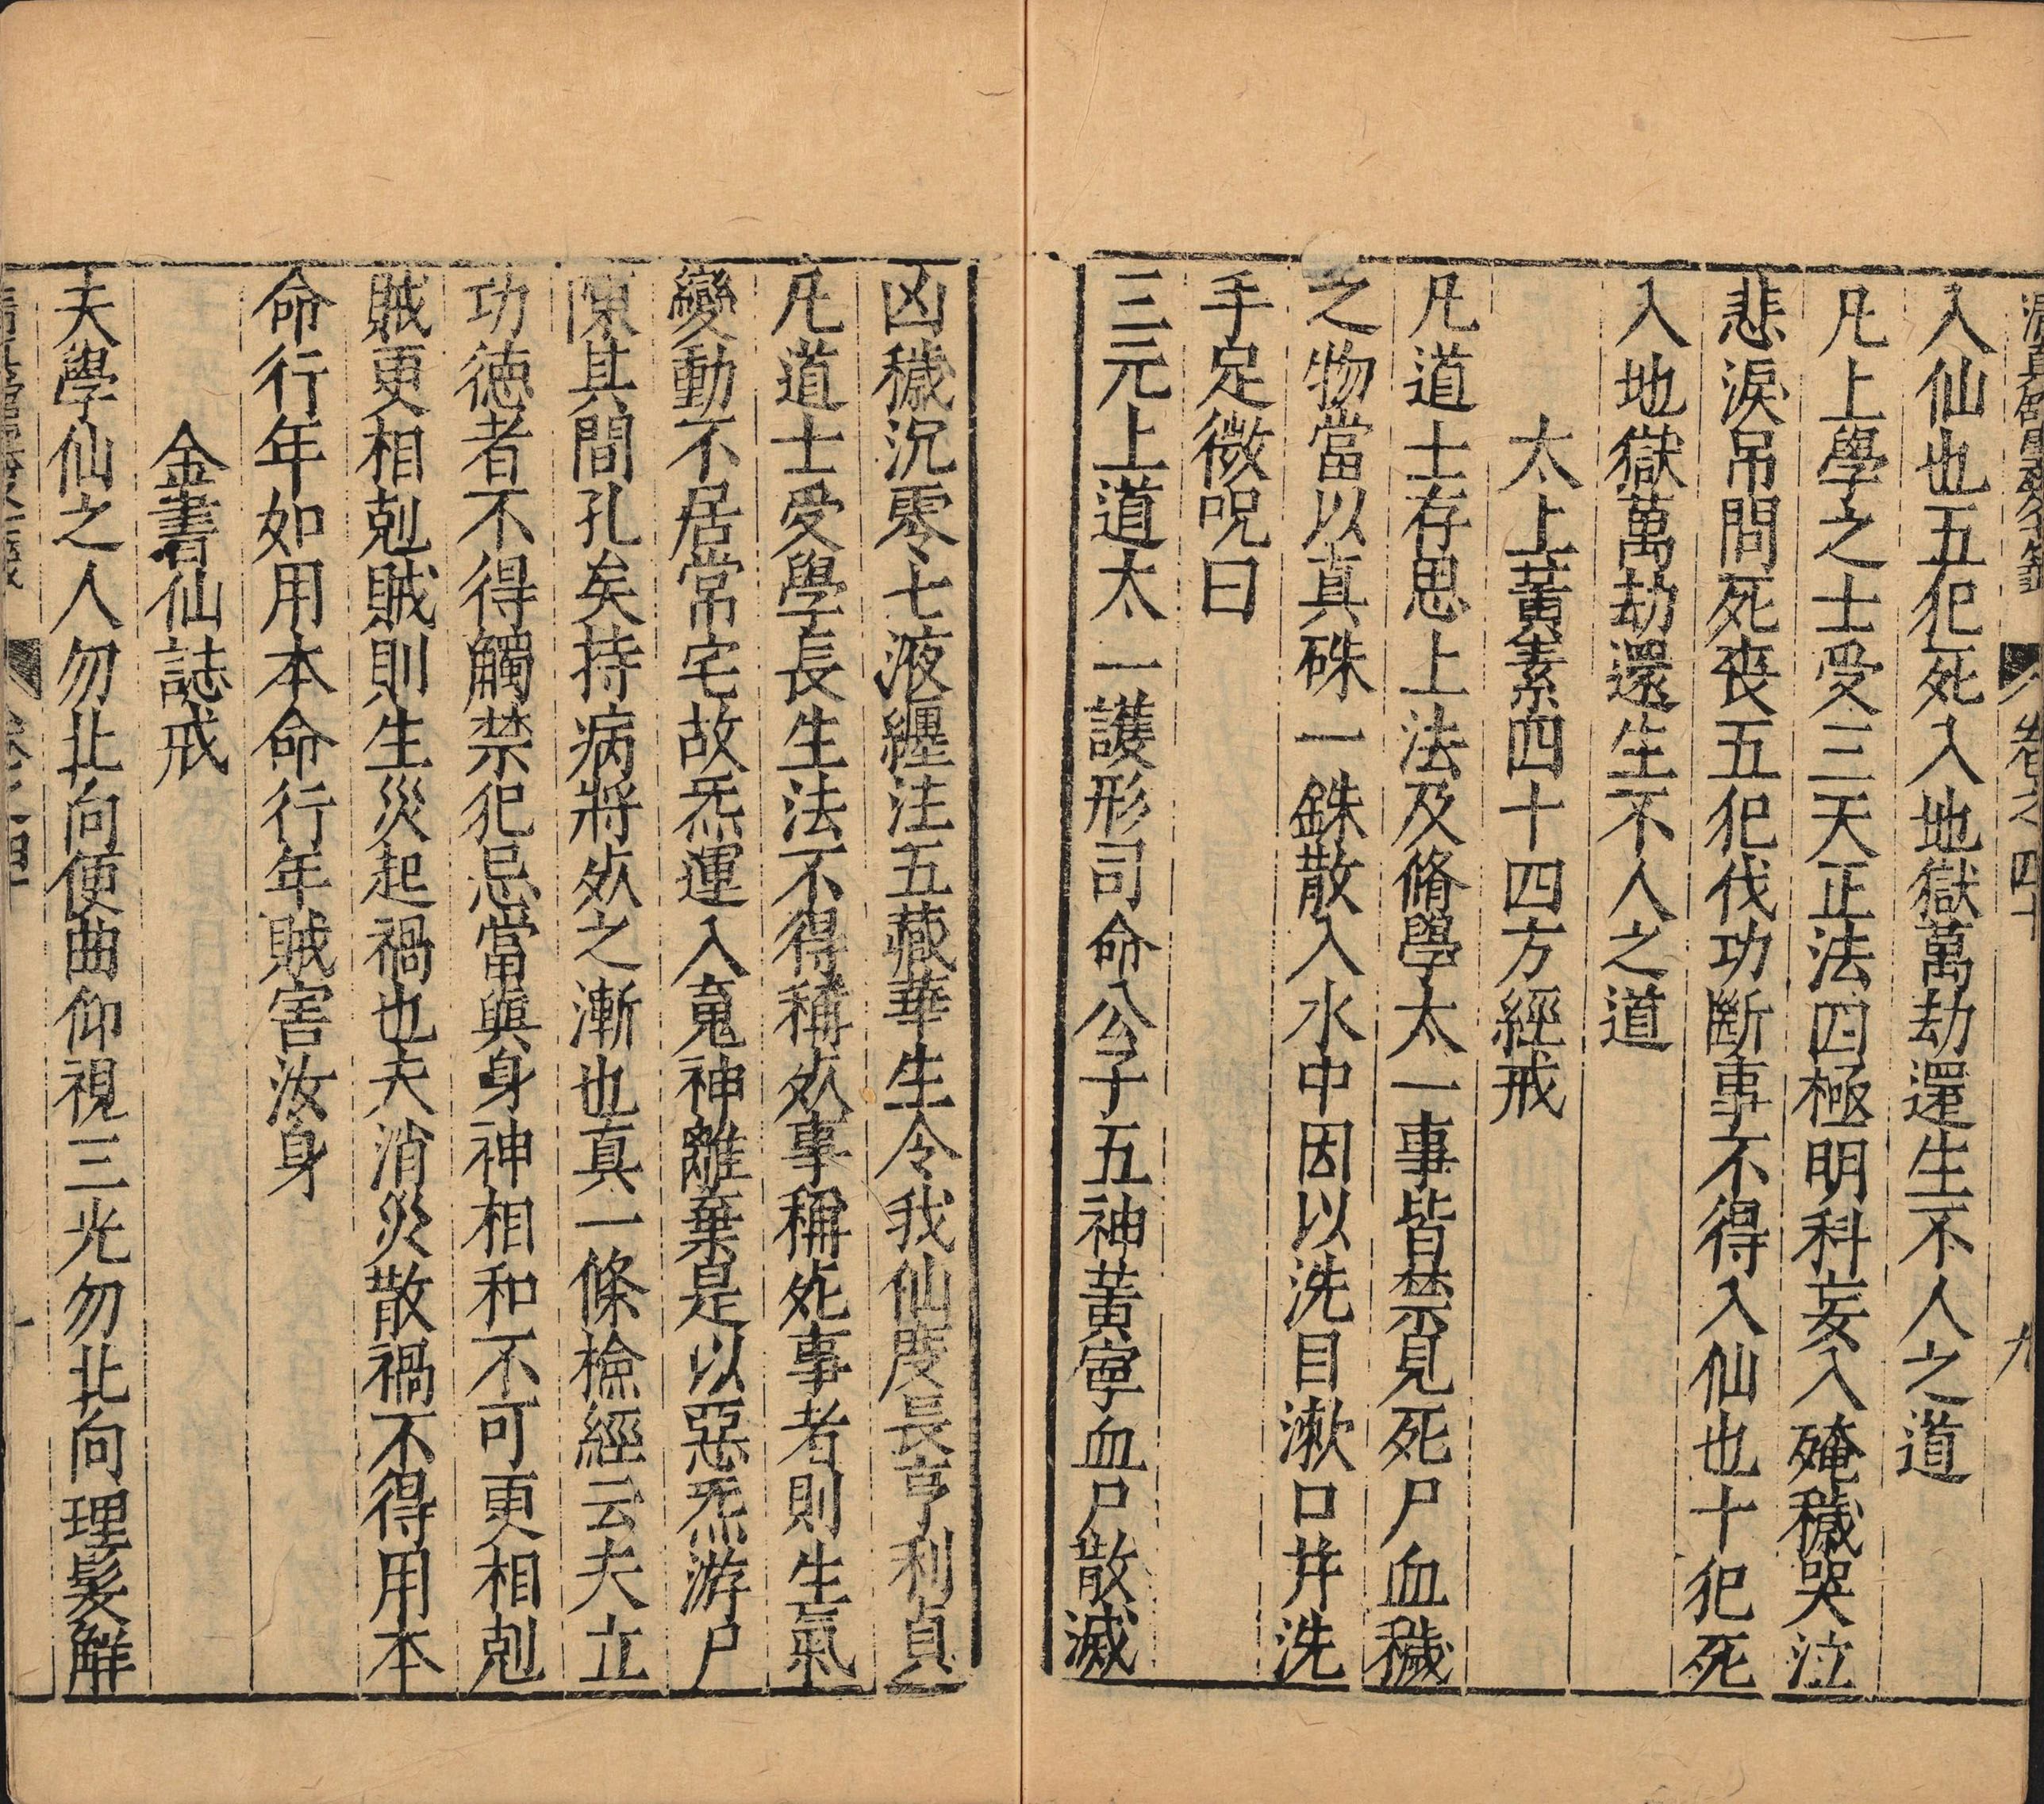 卷之四十 九
入仙也五犯死入地獄萬劫還生不人之道
凡上學之士受三天正法四極明科妄入殗穢哭泣
悲淚吊問死喪五犯伐功斷事不得入仙也十犯死
入地獄萬劫還生不人之道
太上黃素四十四方經戒
凡道士存思上法及脩學太一事皆禁見死尸血穢
之物當以真硃一銖散入水中因以洗目漱口并洗
手足微呪曰
三元上道太一護形司命公子五神黃寧血尸散滅
凶穢沉零七液纏注五藏華生令我仙度長亨利貞
凡道士受學長生法不得稱㱙事稱死事者則生氣
變動不居常宅故炁運入䰟神離棄是以惡炁游尸
陳其間孔矣持病將㱙之漸也真一條檢經云夫立
功德者不得觸禁犯忌當與身神相和不可更相剋
賊更相剋賊則生災起禍也夫消災散禍不得用本
命行年如用本命行年賊害汝身
金書仙誌戒
夫學仙之人勿北向便曲仰視三光勿北向理髮解